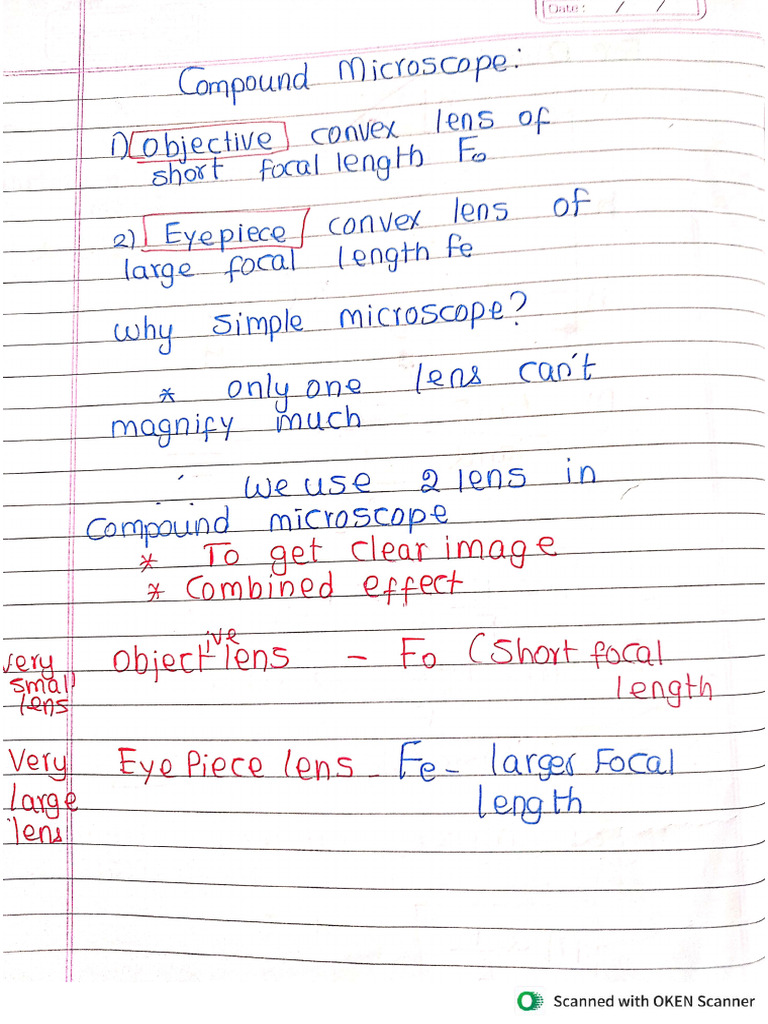 Date: / /
Compound Microscope:
1) Objective convex lens of
short focal length Fo
2) Eyepiece convex lens of
large focal length fe
why simple microscope?
* only one lens can't
magnify much
We use 2 lens in
Compound microscope
* To get clear image
* Combined effect
very small lens
Objective lens - Fo (Short focal
length
Very large lens
Eye Piece lens - Fe - larger Focal
length
Scanned with OKEN Scanner